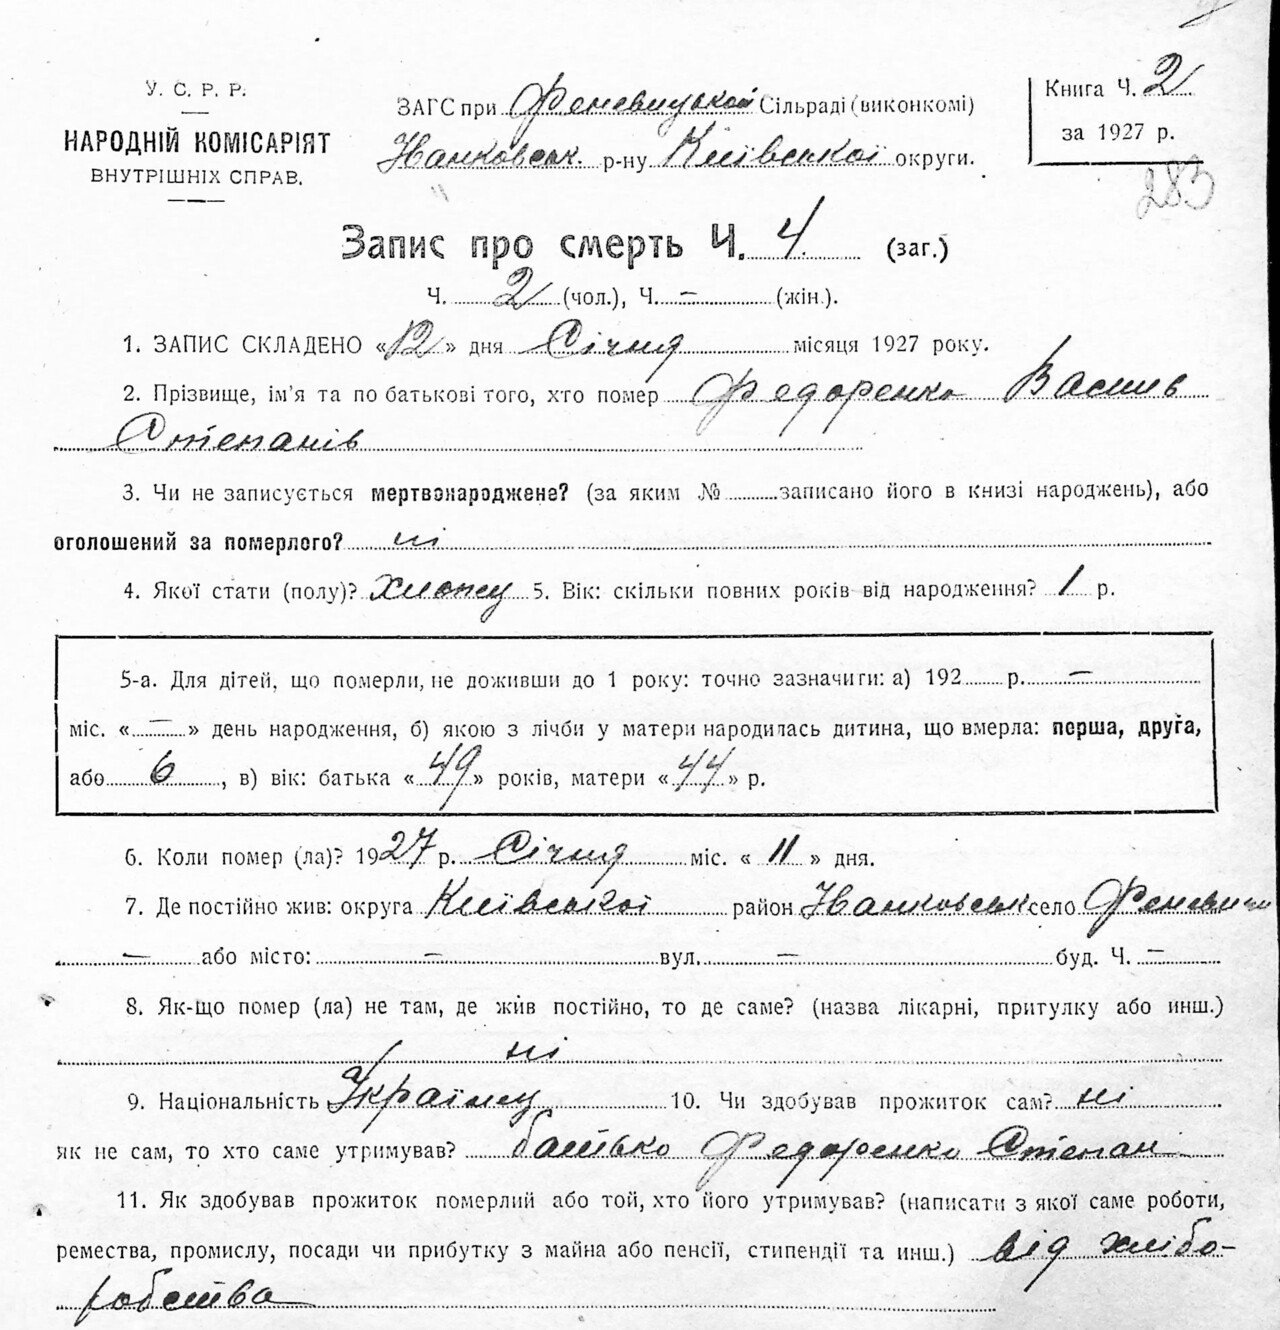 У. С. Р. Р.
НАРОДНІЙ КОМІСАРІЯТ
ВНУТРІШНІХ СПРАВ.
ЗАГС при Феневицькой Сільраді (виконкомі)
Іванковськ. р-ну Київської округи.
Книга Ч. 2
за 1927 р.
283
Запис про смерть Ч. 4 (заг.)
Ч. 2 (чол.), Ч. — (жін.).
1. ЗАПИС СКЛАДЕНО «12» дня Січня місяця 1927 року.
2. Прізвище, ім'я та по батькові того, хто помер Федоренко Василь
Степанів
3. Чи не записується мертвонароджене? (за яким № записано його в книзі народжень), або
оголошений за померлого? ні
4. Якої стати (полу)? хлопец 5. Вік: скільки повних років від народження? 1 р.
5-а. Для дітей, що померли, не доживши до 1 року: точно зазначити: а) 192 р. —
міс. « — » день народження, б) якою з лічби у матери народилась дитина, що вмерла: перша, друга,
або 6, в) вік: батька «49» років, матери «44» р.
6. Коли помер (ла)? 1927 р. Січня міс. «11» дня.
7. Де постійно жив: округа Київської район Іванковськ село Феневичи
— або місто: — вул. — буд. Ч. —
8. Як-що помер (ла) не там, де жив постійно, то де саме? (назва лікарні, притулку або инш.)
ні
9. Національність Українец 10. Чи здобував прожиток сам? ні
як не сам, то хто саме утримував? батько Федоренко Степан
11. Як здобував прожиток померлий або той, хто його утримував? (написати з якої саме роботи,
ремества, промислу, посади чи прибутку з майна або пенсії, стипендії та инш.) від хлібо-
робства